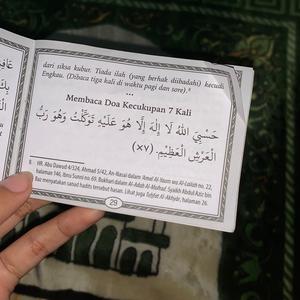 dari siksa kubur. Tiada ilah (yang berhak diibadahi) kecuali
Engkau. (Dibaca tiga kali di waktu pagi dan sore).⁸
***
Membaca Doa Kecukupan 7 Kali
حَسْبِيَ اللّٰهُ لَا إِلٰهَ إِلَّا هُوَ عَلَيْهِ تَوَكَّلْتُ وَهُوَ رَبُّ
الْعَرْشِ الْعَظِيْمِ. (٧×)
8. HR. Abu Dawud 4/324, Ahmad 5/42, An-Nasai dalam 'Amal Al-Yaum wa Al-Lailah no. 22,
halaman 146, Ibnu Sunni no. 69. Bukhari dalam Al-Adab Al-Mufrad. Syaikh Abdul Aziz bin
Baz menyatakan sanad hadits tersebut hasan. Lihat juga Tuhfat Al-Akhyar, halaman 26.
29